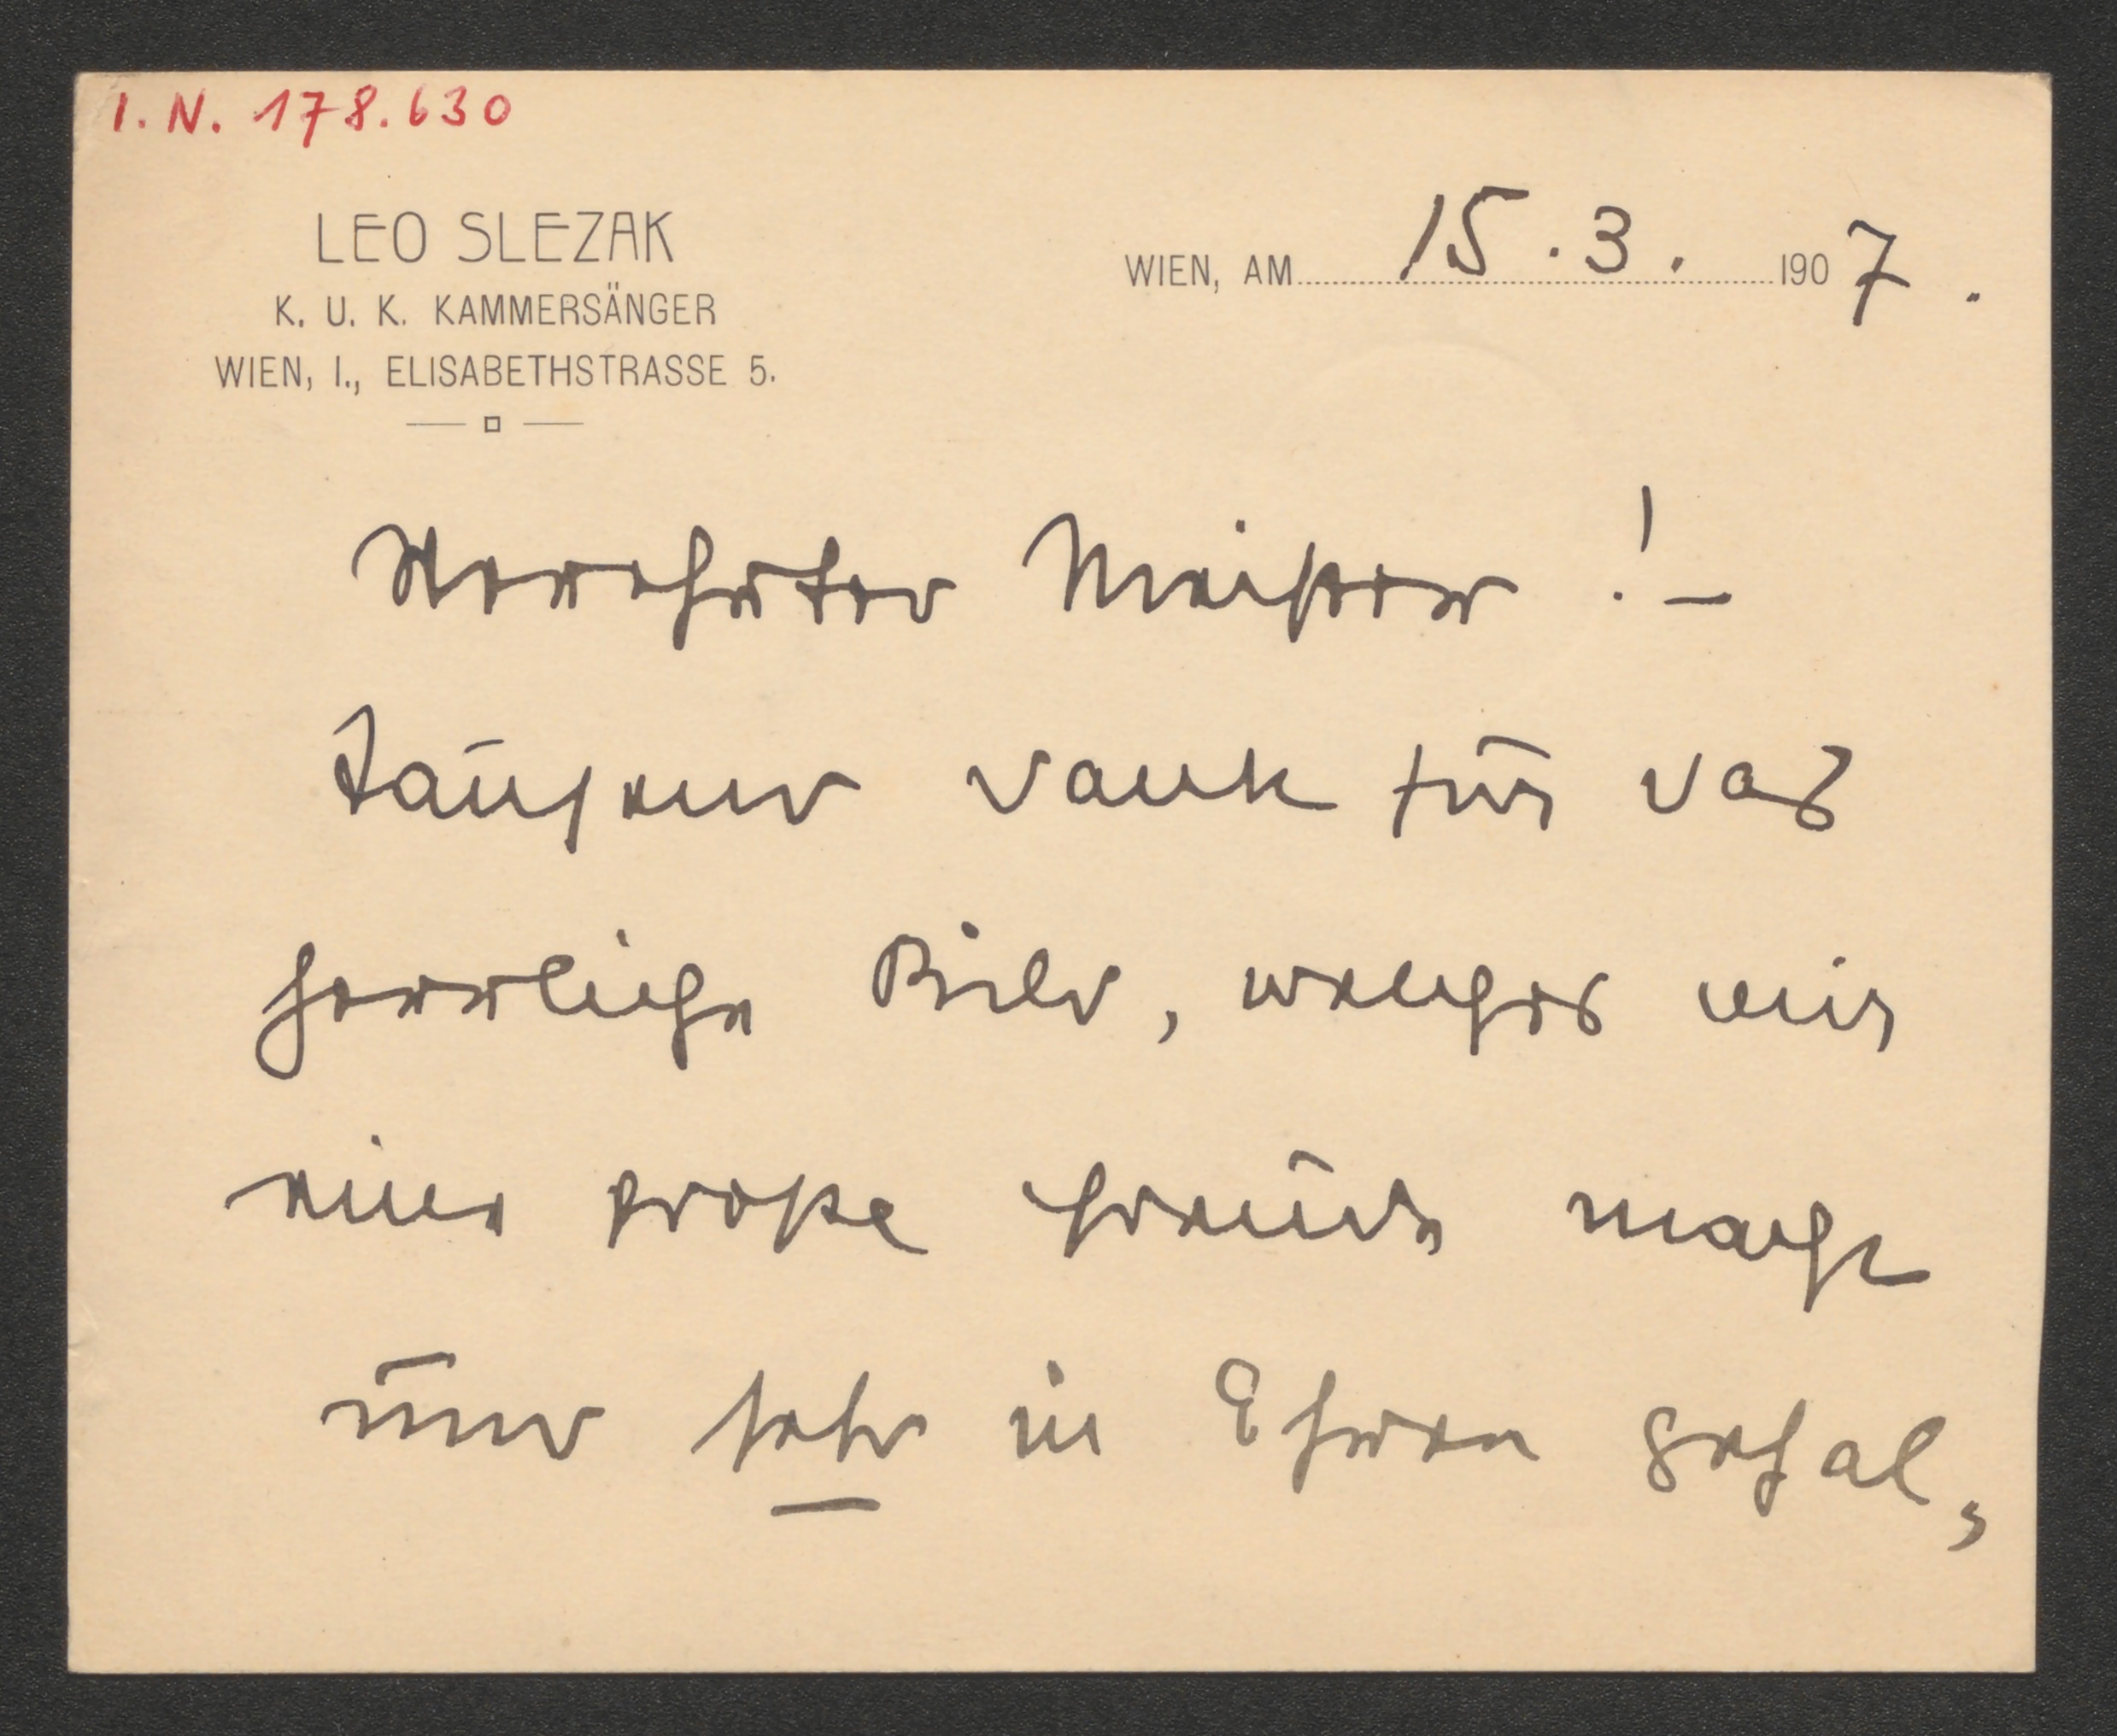 I. N. 178.630
LEO SLEZAK
K. U. K. KAMMERSÄNGER
WIEN, I., ELISABETHSTRASSE 5.
WIEN, AM 15.3. 1907.
Verehrter Meister! –
Tausend Dank für das
herrliche Bild, welches mir
eine große Freude macht
und sehr in Ehren gehal,